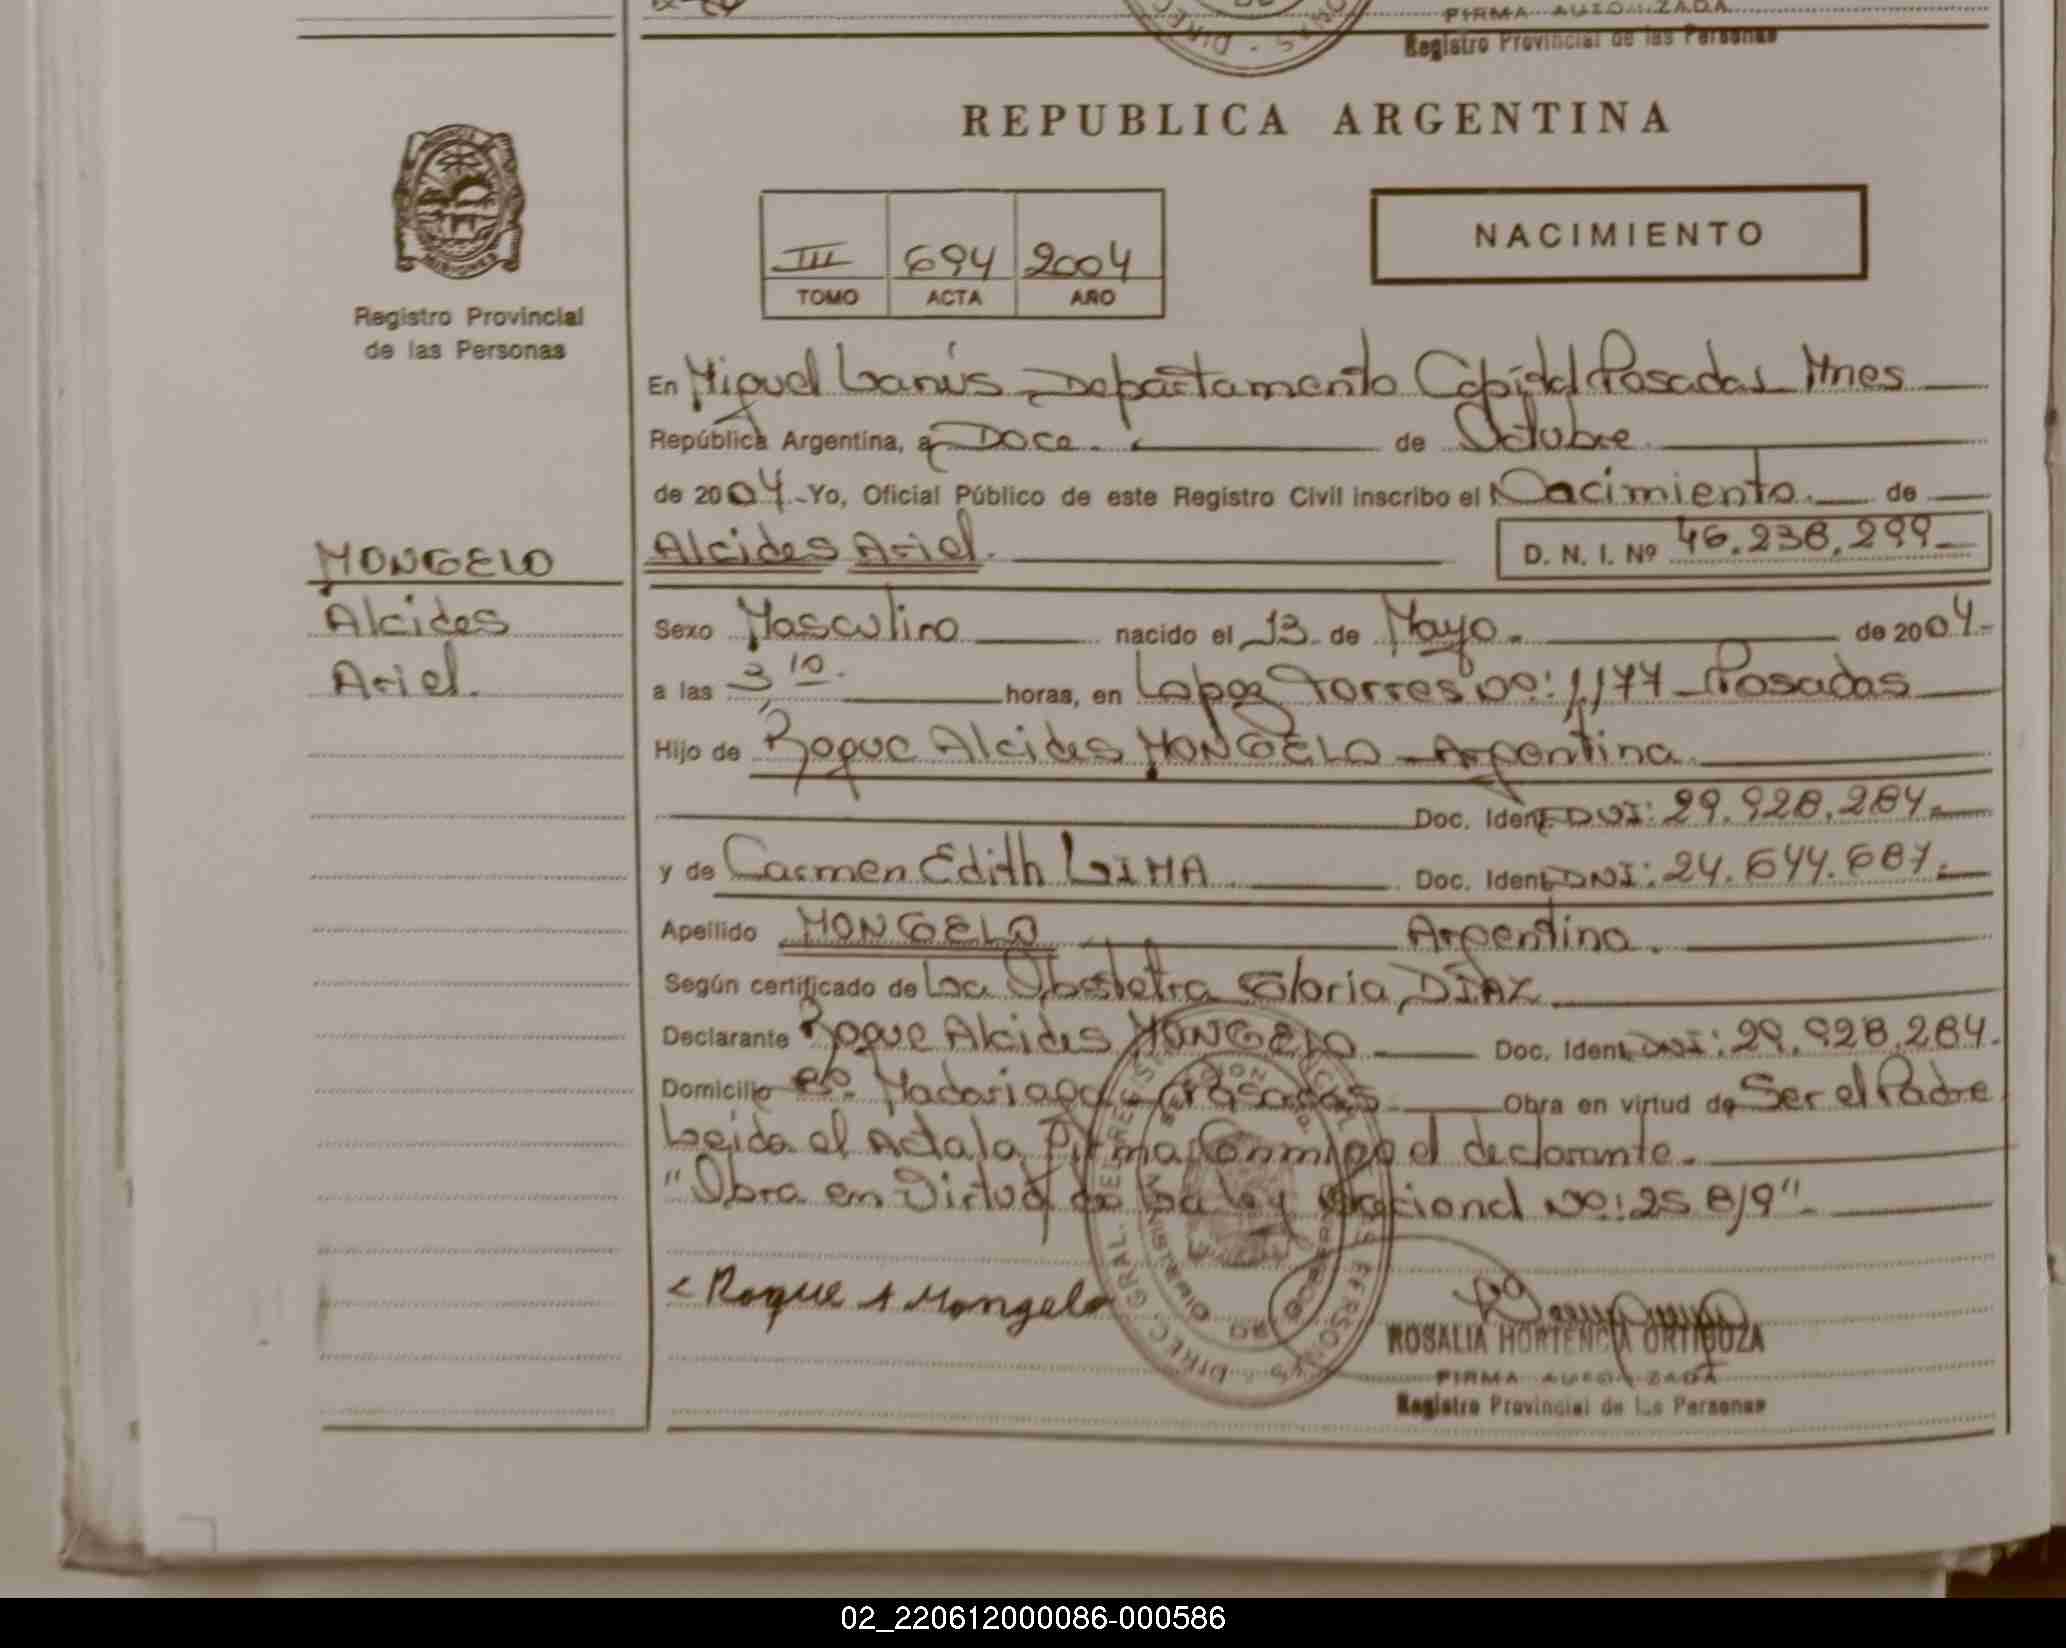 FIRMA AUTORIZADA
Registro Provincial de las Personas
REPUBLICA ARGENTINA
NACIMIENTO
III 694 2004
TOMO ACTA AÑO
MISIONES
Registro Provincial
de las Personas
En Miguel Lanús Departamento Capital Posadas Mnes
República Argentina, a Doce de Octubre
de 2004 Yo, Oficial Público de este Registro Civil inscribo el Nacimiento de
MONGELO
Alcides
Ariel.
Alcides Ariel. D. N. I. Nº 46.238.299
Sexo Masculino nacido el 13 de Mayo de 2004
a las 3,10 horas, en Lopez Torres Nº: 1177 Posadas
Hijo de Roque Alcides MONGELO Argentina
Doc. Ident. DNI: 29.928.284
y de Carmen Edith LIMA Doc. Ident. DNI: 24.644.687
Apellido MONGELO Argentina.
Según certificado de La Obstetra Gloria DIAZ
Declarante Roque Alcides MONGELO Doc. Ident. DNI: 29.928.284.
Domicilio Bº. Madariaga Posadas Obra en virtud de Ser el Padre
Leida el Acta la Firma Conmigo el declarante.
"Obra en Virtud de La Ley Nacional Nº: 25 819".
Roque A Mongelo
ROSALIA HORTENCIA ORTIGOZA
FIRMA AUTORIZADA
Registro Provincial de las Personas
02_220612000086-000586